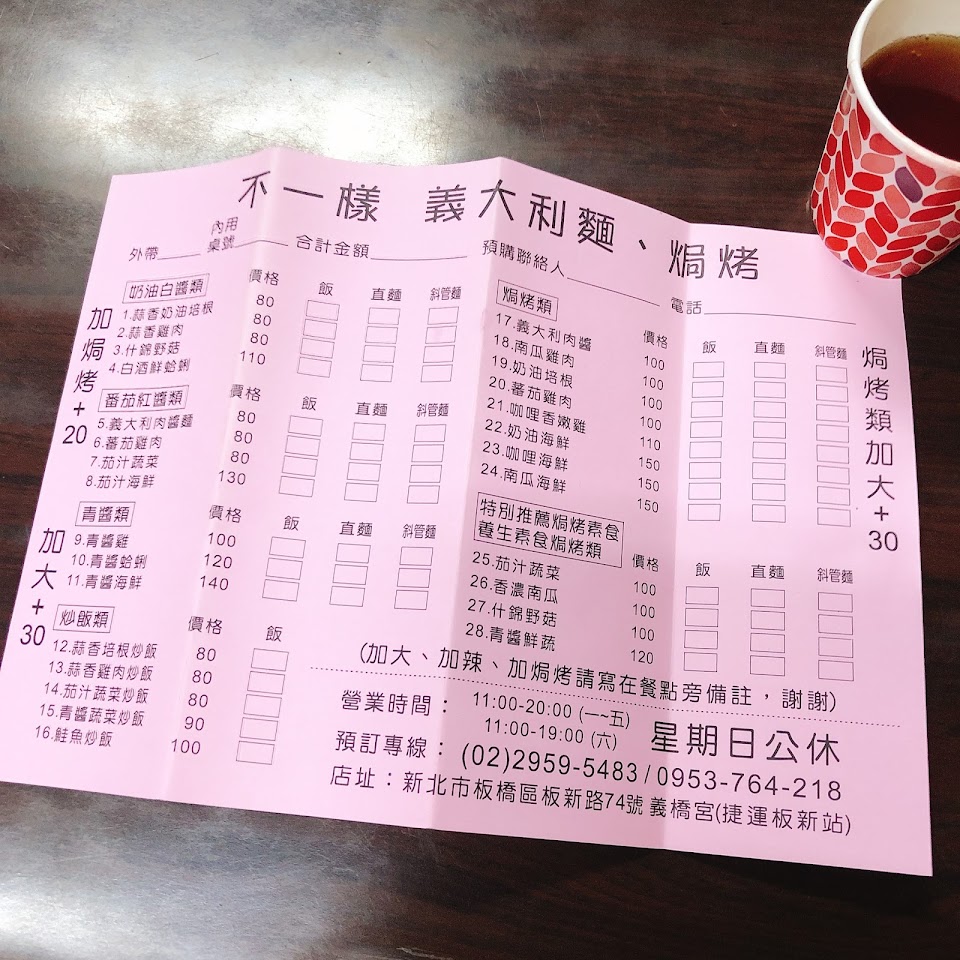 不一樣 義大利麵、焗烤
外帶____ 內用桌號______ 合計金額__________ 預購聯絡人__________ 電話______________
加焗烤+20
加大+30
奶油白醬類 價格 飯 直麵 斜管麵
1.蒜香奶油培根 80
2.蒜香雞肉 80
3.什錦野菇 80
4.白酒鮮蛤蜊 110
番茄紅醬類 價格 飯 直麵 斜管麵
5.義大利肉醬麵 80
6.蕃茄雞肉 80
7.茄汁蔬菜 80
8.茄汁海鮮 130
青醬類 價格 飯 直麵 斜管麵
9.青醬雞 100
10.青醬蛤蜊 120
11.青醬海鮮 140
炒飯類 價格 飯
12.蒜香培根炒飯 80
13.蒜香雞肉炒飯 80
14.茄汁蔬菜炒飯 80
15.青醬蔬菜炒飯 90
16.鮭魚炒飯 100
焗烤類 價格 飯 直麵 斜管麵
17.義大利肉醬 100
18.南瓜雞肉 100
19.奶油培根 100
20.蕃茄雞肉 100
21.咖哩香嫩雞 110
22.奶油海鮮 150
23.咖哩海鮮 150
24.南瓜海鮮 150
焗烤類加大+30
特別推薦焗烤素食
養生素食焗烤類 價格 飯 直麵 斜管麵
25.茄汁蔬菜 100
26.香濃南瓜 100
27.什錦野菇 100
28.青醬鮮蔬 120
(加大、加辣、加焗烤請寫在餐點旁備註，謝謝)
營業時間： 11:00-20:00 (一~五)
11:00-19:00 (六) 星期日公休
預訂專線： (02)2959-5483 / 0953-764-218
店址：新北市板橋區板新路74號 義橋宮(捷運板新站)